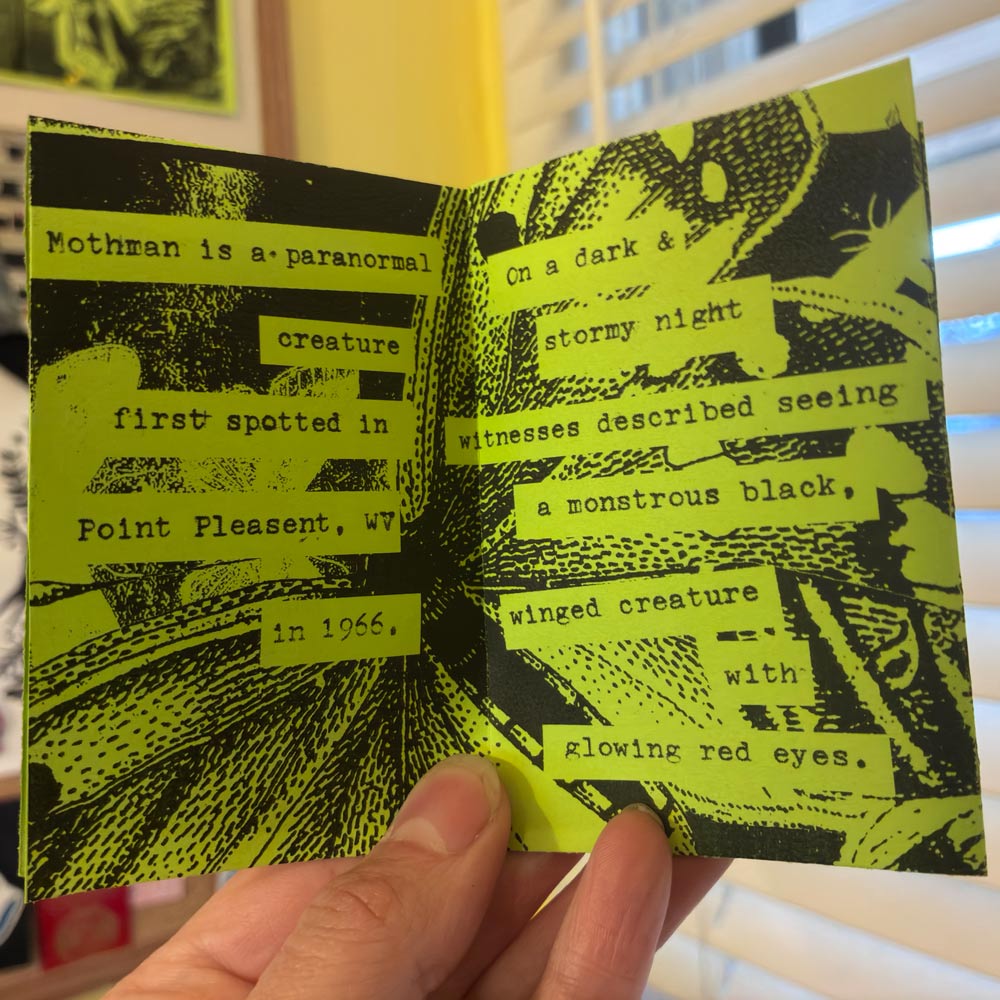 Mothman is a paranormal
creature
first spotted in
Point Pleasent, WV
in 1966.
On a dark &
stormy night
witnesses described seeing
a monstrous black,
winged creature
with
glowing red eyes.